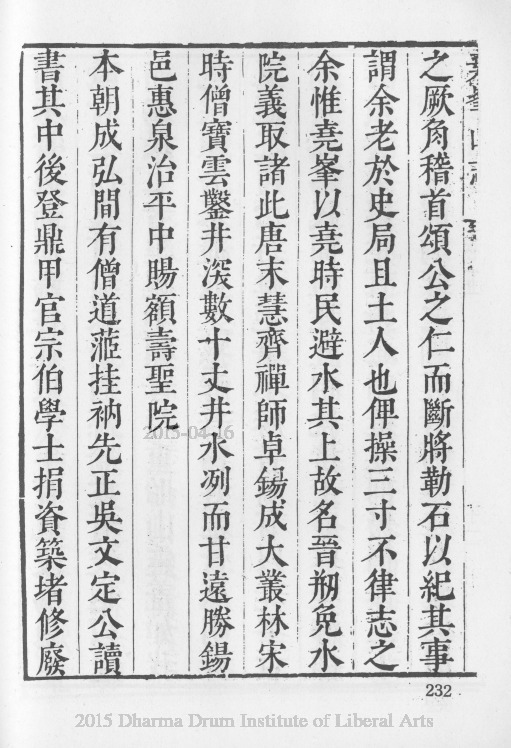 之厥角稽首頌公之仁而斷將勒石以紀其事
謂余老於史局且土人也俾操三寸不律志之
余惟堯峯以堯時民避水其上故名晉剏免水
院義取諸此唐末慧齊禪師卓錫成大叢林宋
時僧寶雲鑿井深數十丈井水冽而甘遠勝錫
邑惠泉治平中賜額壽聖院
本朝成弘間有僧道蒞挂衲先正吳文定公讀
書其中後登鼎甲官宗伯學士捐資築堵修廢
2015-04-16
232
2015 Dharma Drum Institute of Liberal Arts